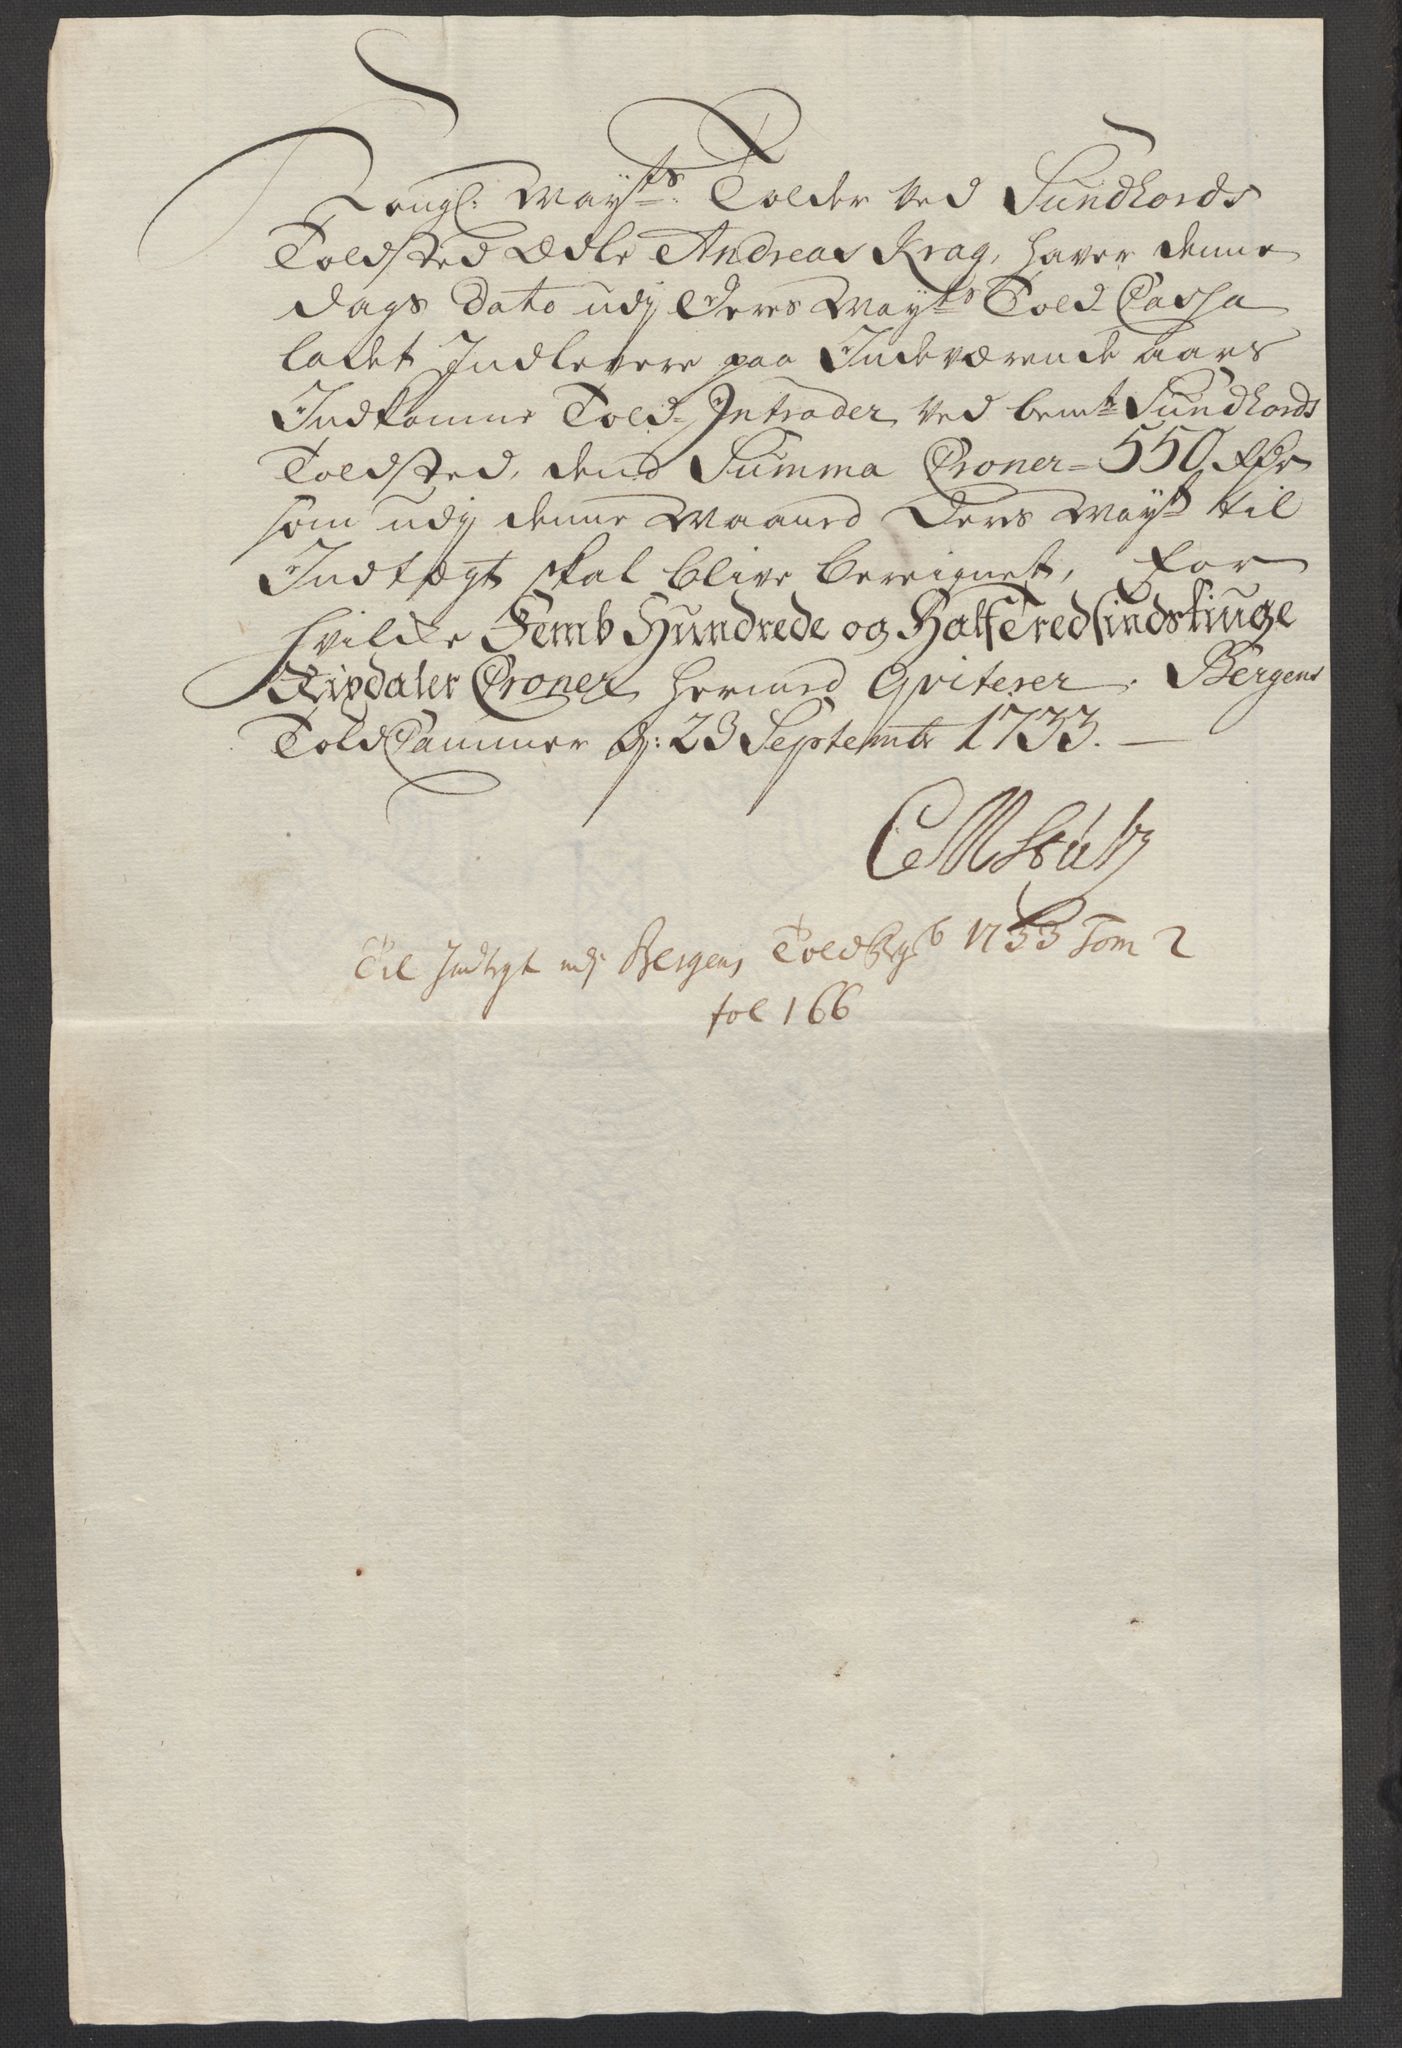 Kongl: May:ts Tolder ved Sundhords
Toldsted Ædle Andreas Krag, haver denne
dags dato udj Deres May:ts Told Cassa
ladet Indlevere paa Indeværende aars
Indkomne Told-Intrader ved bem:te Sundhords
Toldsted, dend Summa Croner = 550 Rdr
som udj denne Maaned Deres May:ts til
Indtægt skal blive bereignet, for
hvilcke Femb Hundrede og HalfTredsindstiuge
Rixdaler Croner hermed Qviterer. Bergens
ToldCammer d: 23 Septembr 1733.
Til Indtegt udj Bergens Told 1733 Tom 2
fol 166